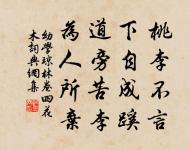 桃李不言
下自成蹊
道旁苦李
為人所棄
幼學瓊林卷四花
木詞典網集